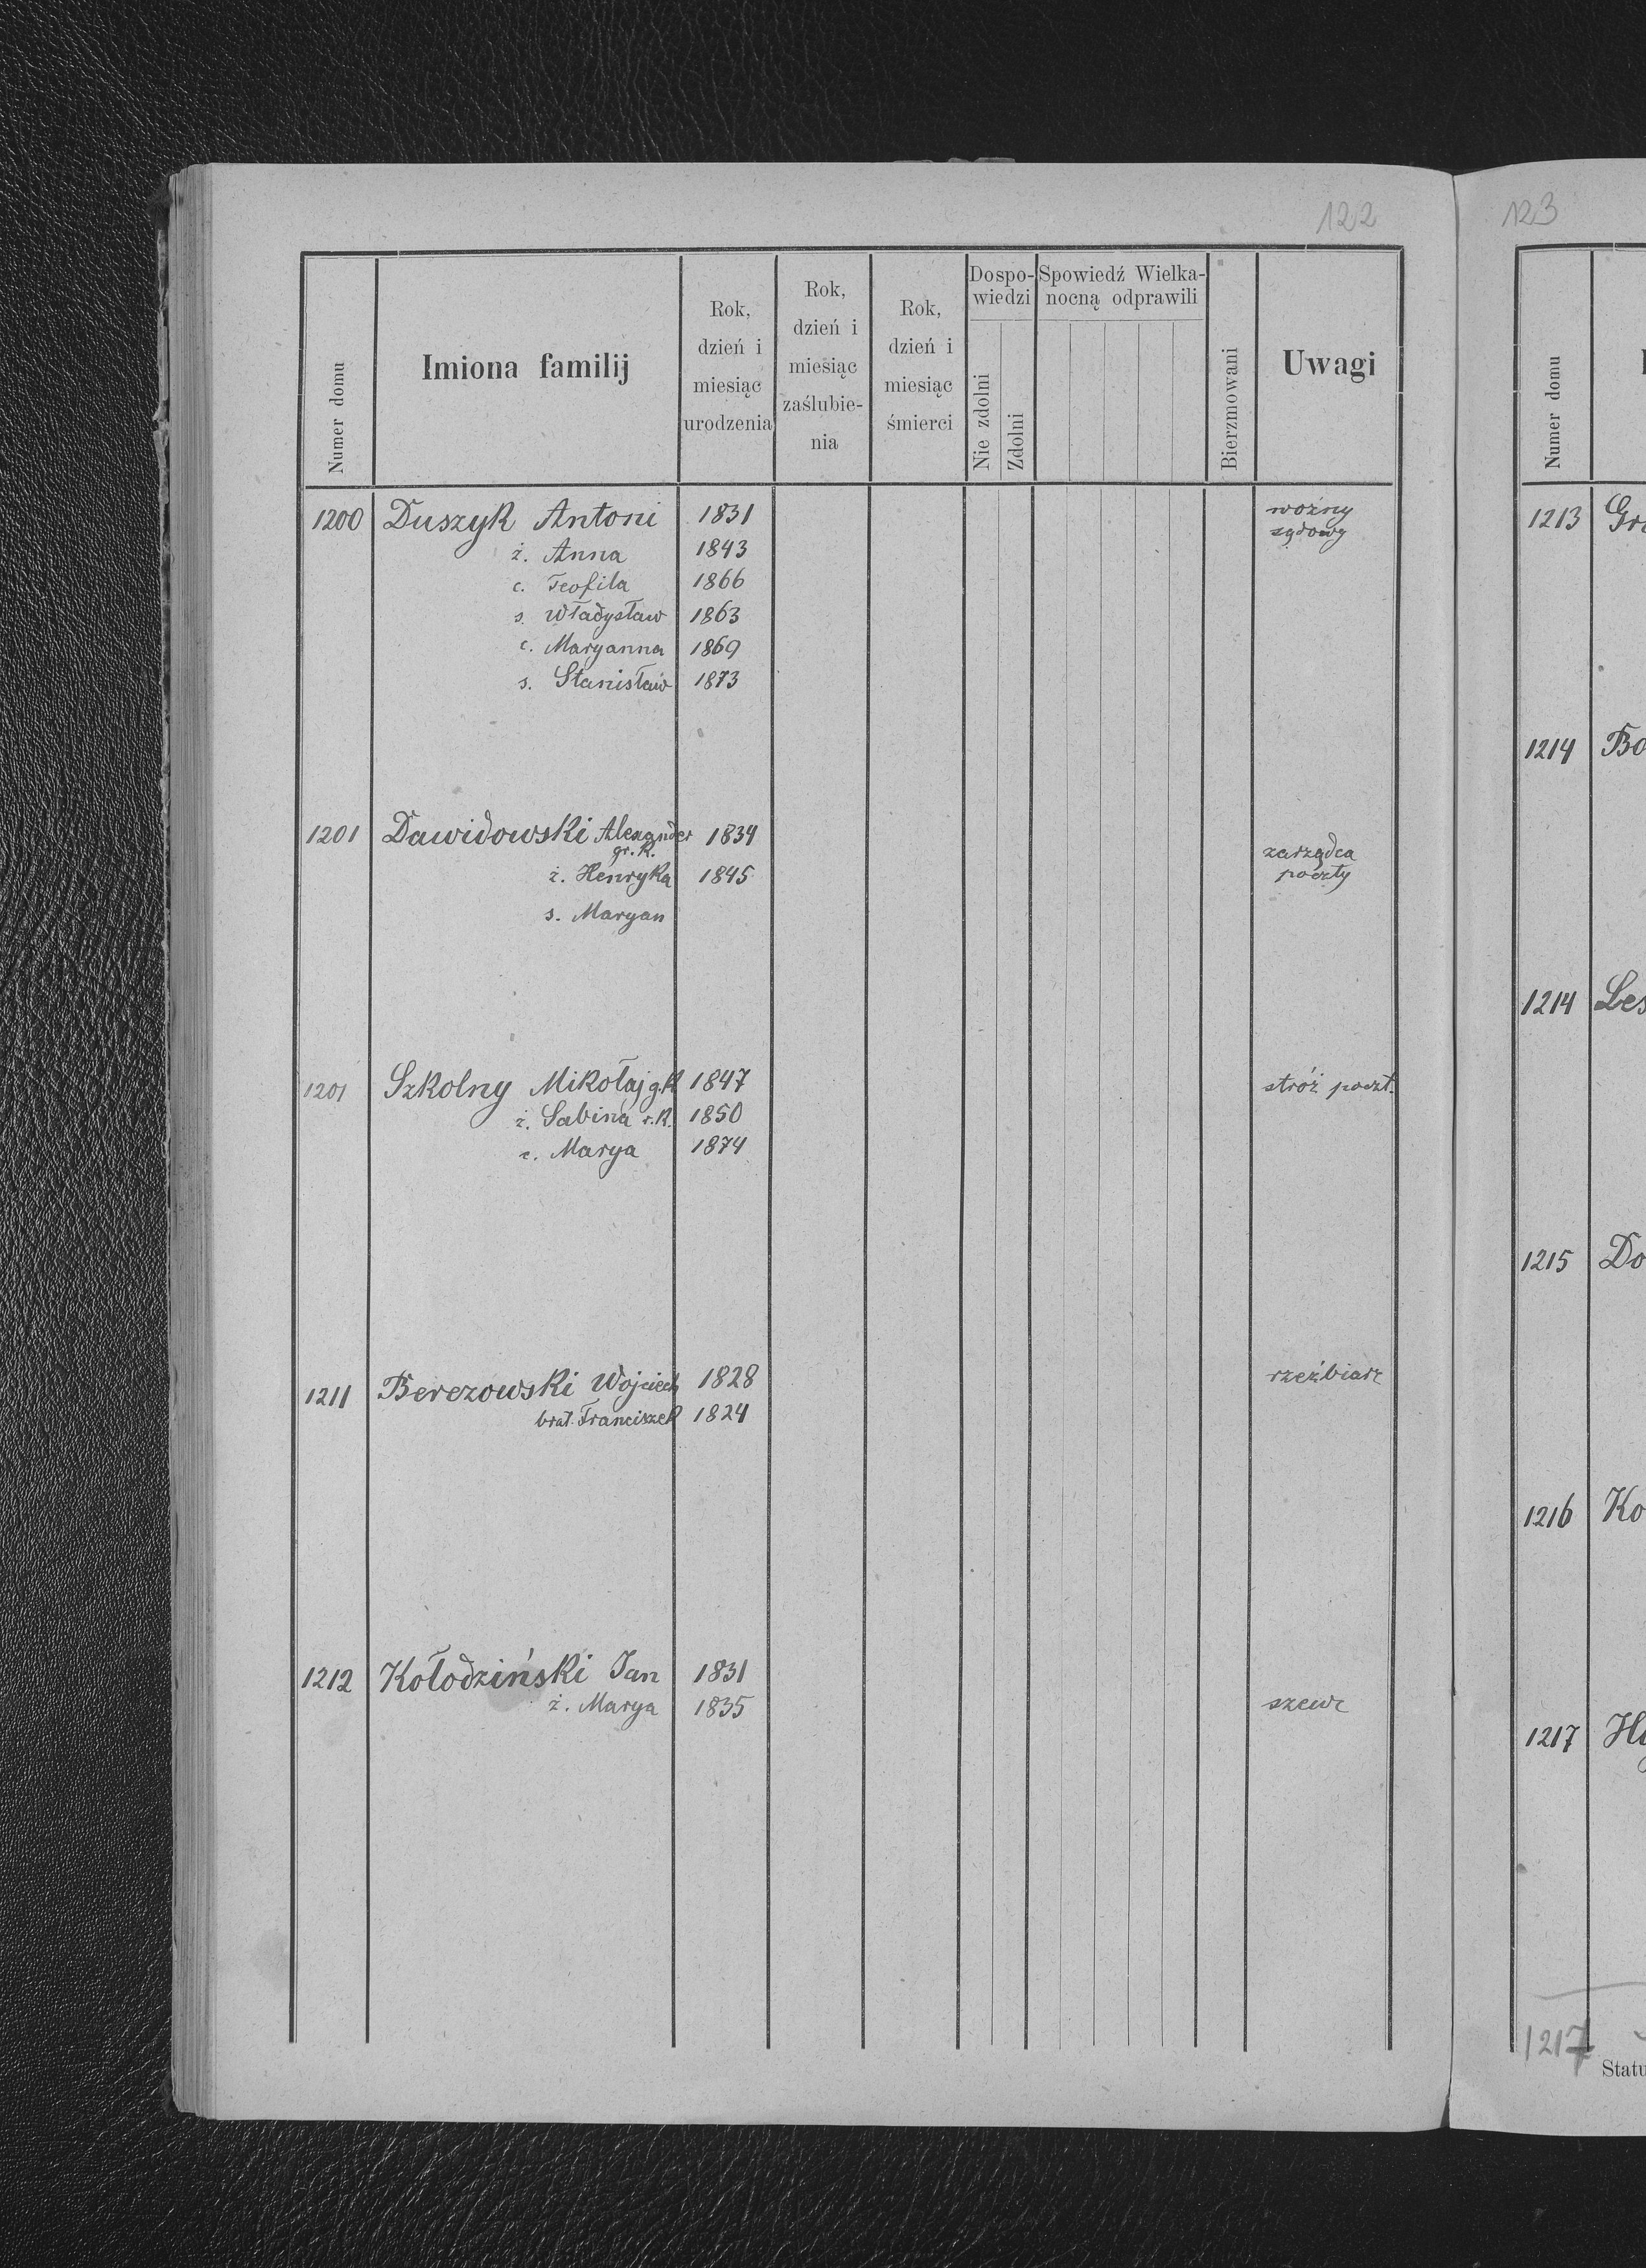 122
Numer domu
Imiona familij
Rok, dzień i miesiąc urodzenia
Rok, dzień i miesiąc zaślubie-nia
Rok, dzień i miesiąc śmierci
Dospo-wiedzi
Nie zdolni
Zdolni
Spowiedź Wielka-nocną odprawili
Bierzmowani
Uwagi
1200 Duszyk Antoni 1831 woźny
sądowy
ż. Anna 1843
c. Teofila 1866
s. Władysław 1863
c. Maryanna 1869
s. Stanisław 1873
1201 Dawidowski Alexander 1834
gr. k. zarządca
ż. Henryka 1845 poczty
s. Maryan
1201 Szkolny Mikołaj g.k 1847 stróż poczt.
ż. Sabina r.k. 1850
c. Marya 1874
1211 Berezowski Wojciech 1828 rzeźbiarz
brat Franciszek 1824
1212 Kołodziński Jan 1831
ż. Marya 1835 szewc
123
Numer domu
1213 Gra
1214 Bo
1214 Les
1215 Do
1216 Ko
1217
1217
Statu